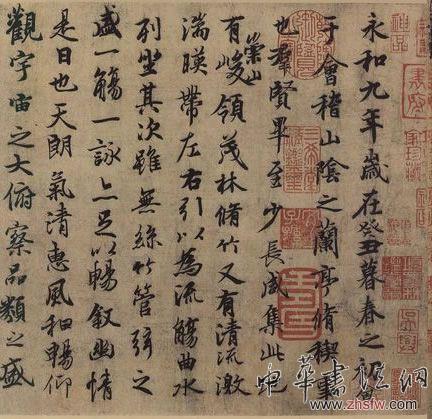 永和九年歲在癸丑暮春之初
于會稽山陰之蘭亭脩禊事
也羣賢畢至少長咸集此地
有崇山峻領茂林脩竹又有清流激
湍暎帶左右引以為流觴曲水
列坐其次雖無絲竹管弦之
盛一觴一詠亦足以暢敘幽情
是日也天朗氣清惠風和暢仰
觀宇宙之大俯察品類之盛
神品
中華書法網
www.zhsfw.com